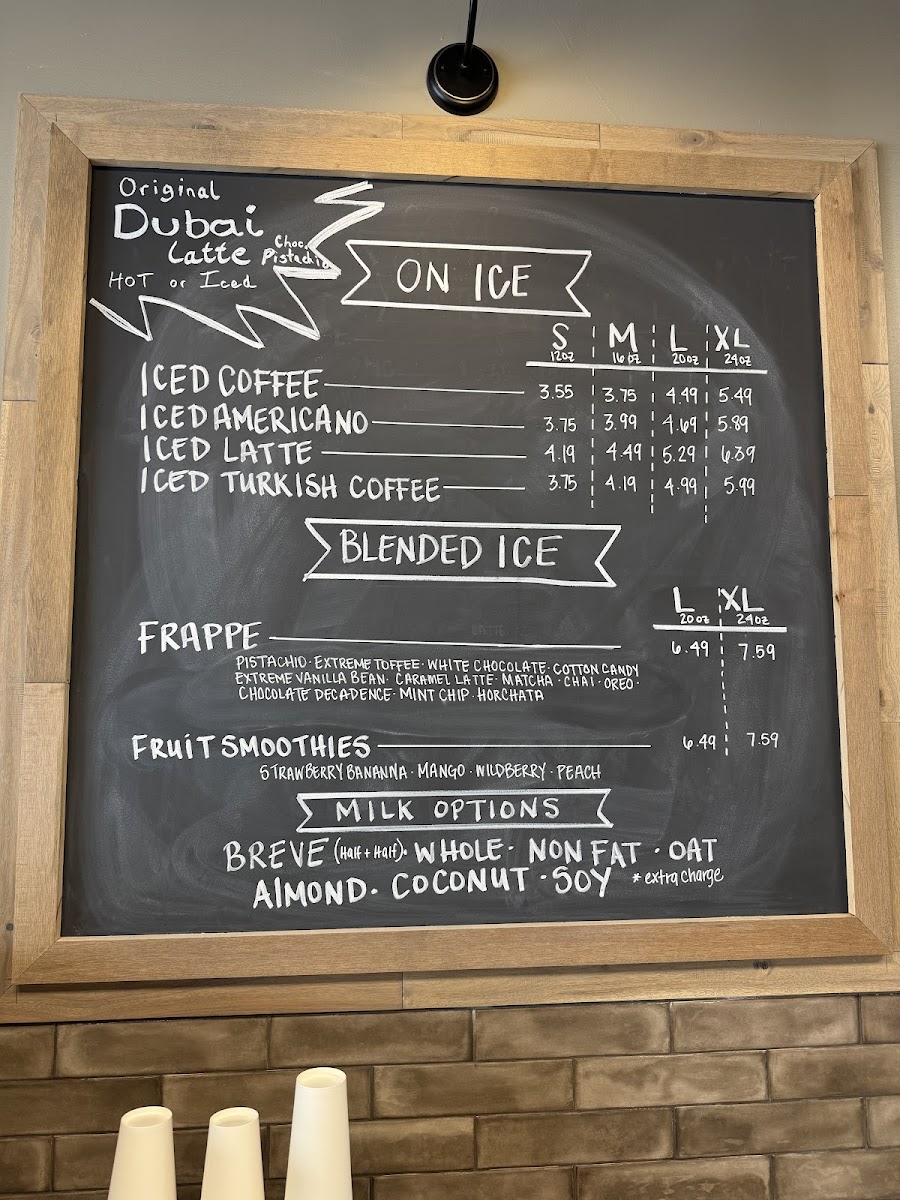 Original
Dubai
Latte Choc. Pistachio
HOT or Iced
ON ICE
S M L XL
12oz 16oz 20oz 24oz
ICED COFFEE 3.55 3.75 4.49 5.49
ICED AMERICANO 3.75 3.99 4.69 5.89
ICED LATTE 4.19 4.49 5.29 6.39
ICED TURKISH COFFEE 3.75 4.19 4.99 5.99
BLENDED ICE
L XL
20oz 24oz
FRAPPE 6.49 7.59
PISTACHIO · EXTREME TOFFEE · WHITE CHOCOLATE · COTTON CANDY
EXTREME VANILLA BEAN · CARAMEL LATTE · MATCHA · CHAI · OREO ·
CHOCOLATE DECADENCE · MINT CHIP · HORCHATA
FRUIT SMOOTHIES 6.49 7.59
STRAWBERRY BANANNA · MANGO · WILDBERRY · PEACH
MILK OPTIONS
BREVE (Half + Half) · WHOLE · NON FAT · OAT
ALMOND · COCONUT · SOY * extra charge